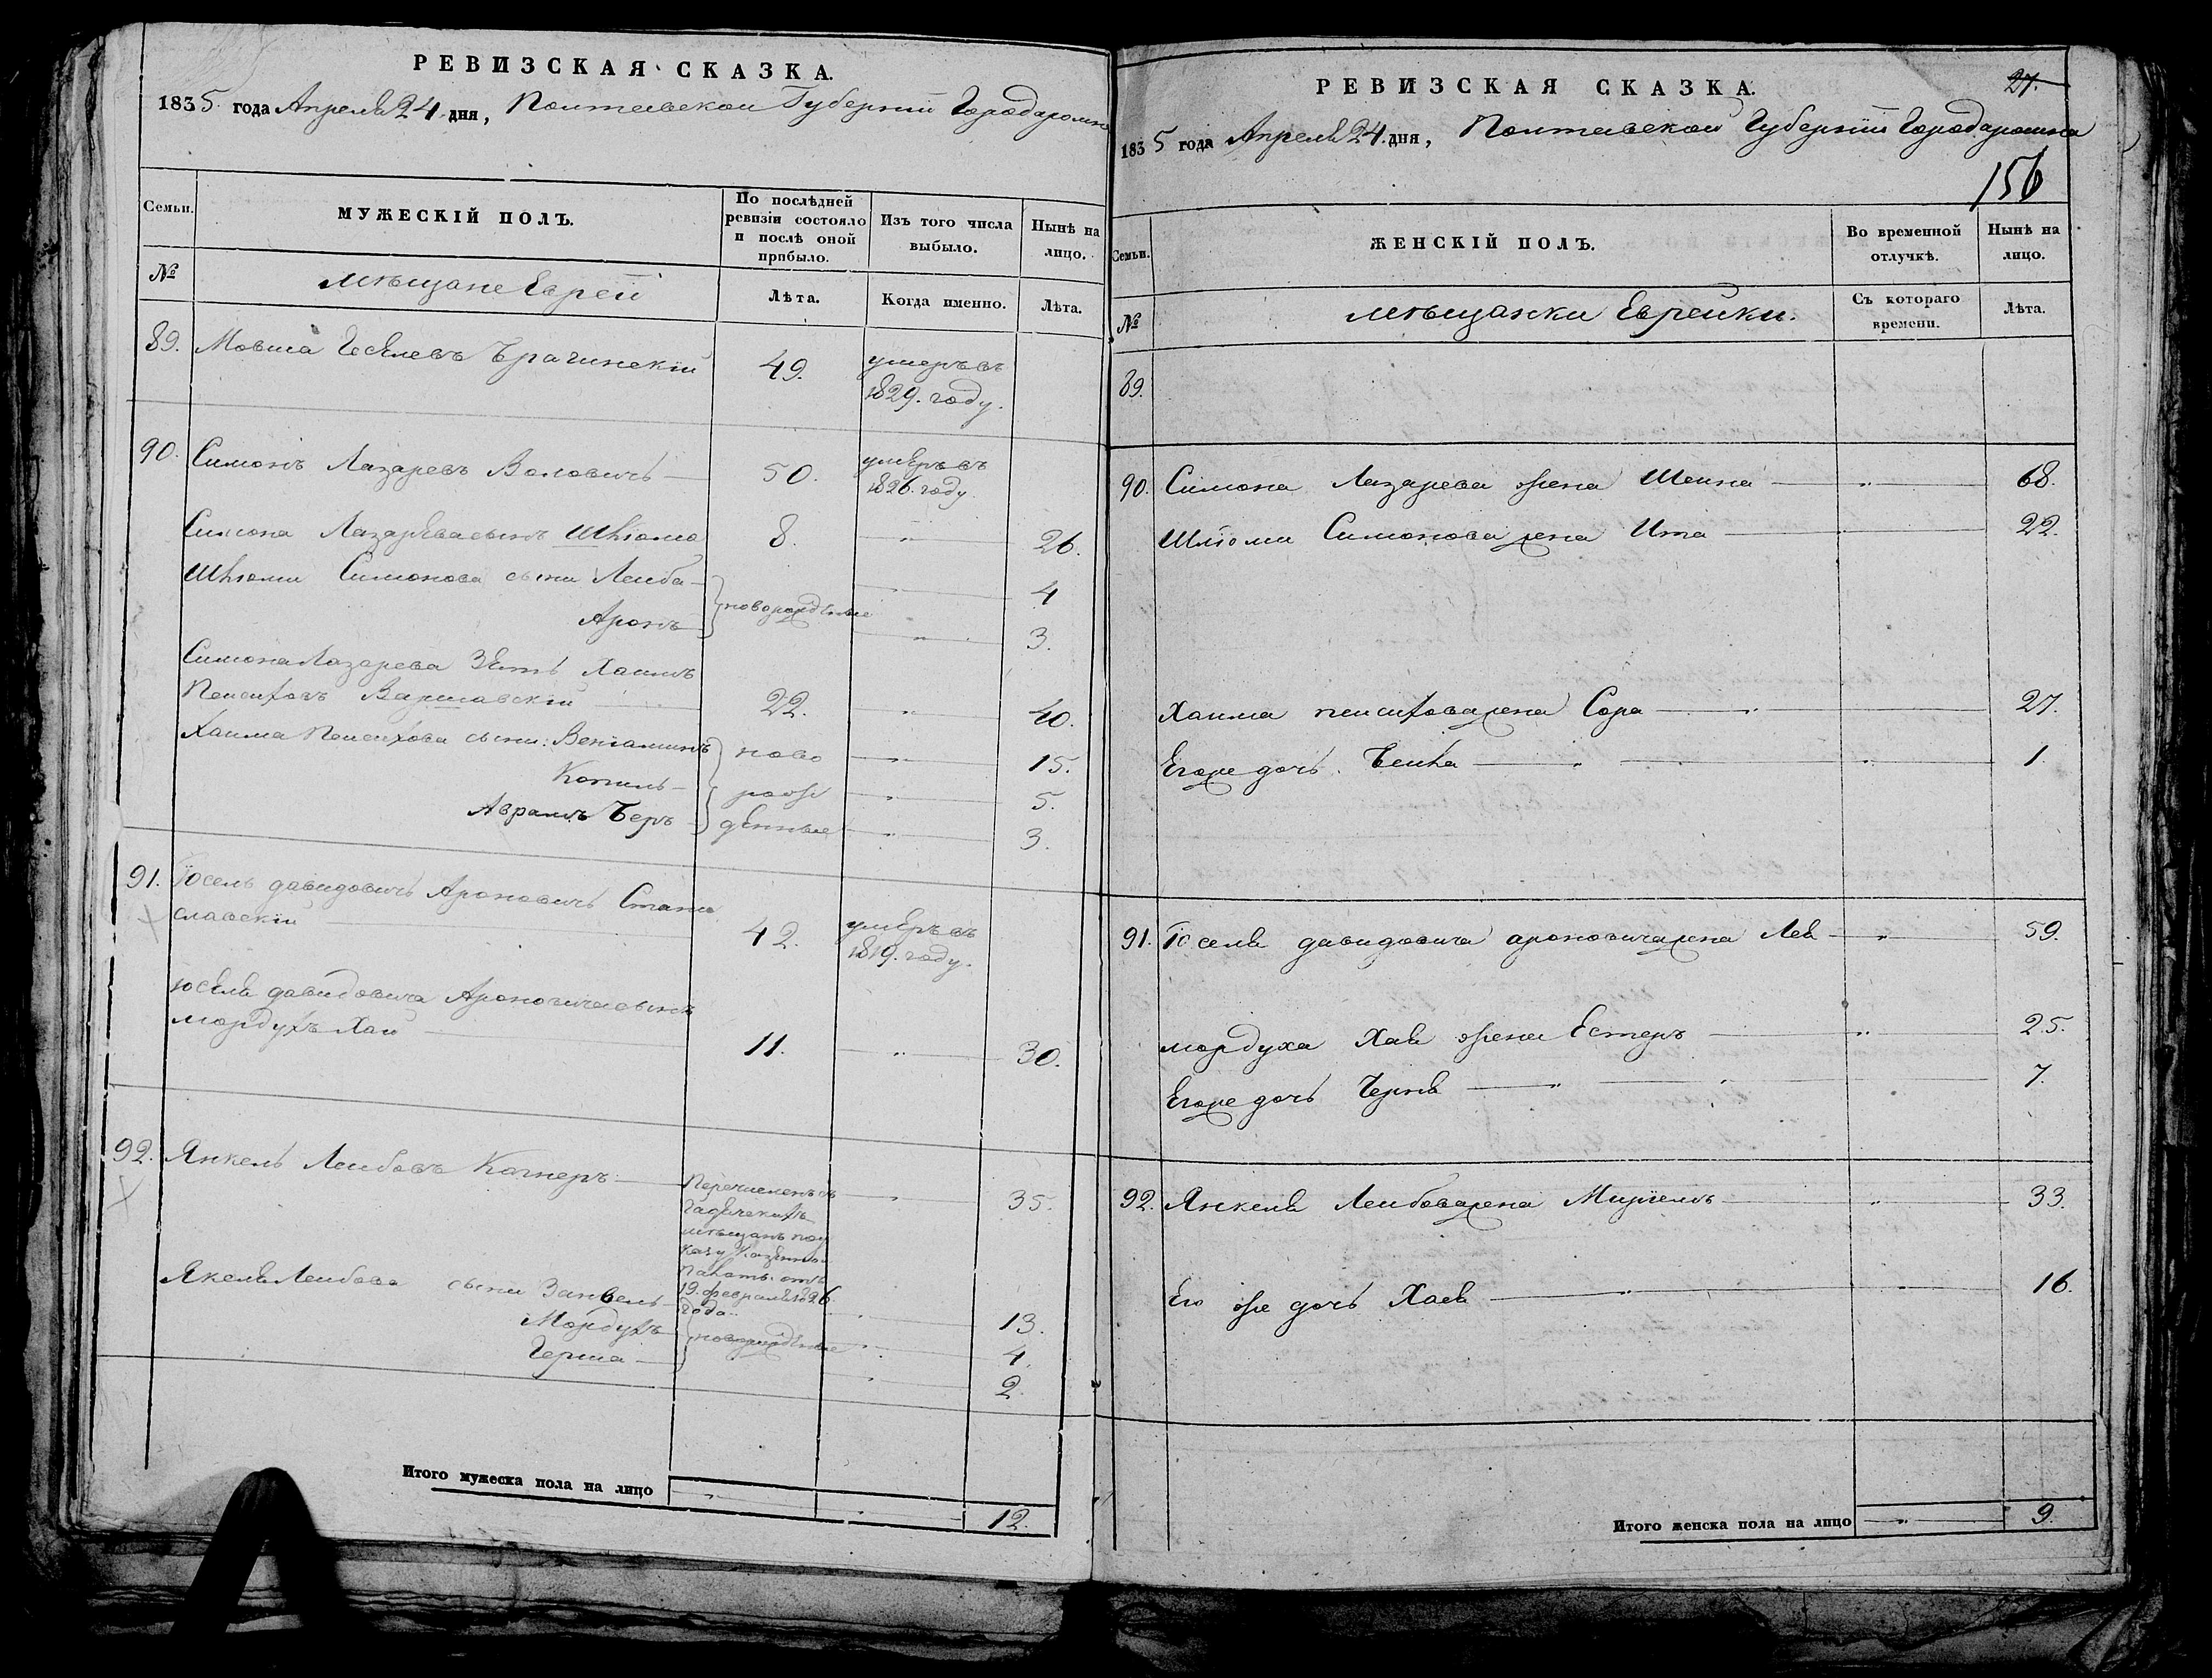 РЕВИЗСКАЯ СКАЗКА.
1835 года Апреля 24 дня, Полтавской Губернїи Города
Семьи.
МУЖЕСКІЙ ПОЛЪ.
По послѣдней ревизіи состояло и послѣ оной прибыло.
Изъ того числа выбыло.
Нынѣ на лицо.
№
мѣщане Еврей
Лѣта.
Когда именно.
Лѣта.
89. Мовша 49. умеръ въ
1829. году.
90. Симонъ Лазаревъ Воловичъ 50. умеръ въ
1826. году
Симона Лазарева сынъ Шлїома 8. " 26.
Шлїоми Симонова сыни Лейба 4
Аронъ новорожденые " 3.
Симона Лазарева Зять Хаимъ
Пейсиховъ Варшавскїй 22. " 40.
Хаима Пейсихова сыни: Венїаминъ ново " 15.
Копель рож " 5.
Аврамъ Беръ денные " 3.
91. Іосель давидовичъ Ароновичъ Стани
славскїй 42. умеръ въ
1819. году.
юселя давидовича Ароновича сынъ
мордухъ Хай 11. " 30.
92. Янкель Лейбовъ Перечисленъ съ " 35.
Гадяческихъ
мѣщанъ по у
казу Казенной
Палаты отъ
19. февраля 1826
года.
Якеля Лейбова сыни Занвель " 13.
Мордухъ новорожденые " 4.
Герша " 2.
Итого мужеска пола на лицо " " 12.
РЕВИЗСКАЯ СКАЗКА.
27.
1835 года Апреля 24. дня, Полтавской Губернїи Города
156
Семьи.
ЖЕНСКІЙ ПОЛЪ.
Во временной отлучкѣ.
Нынѣ на лицо.
№
мѣщанки Еврейки.
Съ котораго времени.
Лѣта.
89.
90. Симона Лазарева жена Шейна " 68.
Шлїоми Симонова жена Ита 22.
Хаима пейсихова жена Сора " 27.
Егоже дочь Бейла " " 1.
91. Іоселя давидовича ароновича жена Лея " 59.
мордуха Хая жена Естеръ " 25.
Егоже дочь Черня " " 7.
92. Янкеля Лейбова жена Мирїемъ " 33.
Его же дочь Хая " " 16.
Итого женска пола на лицо " 9.